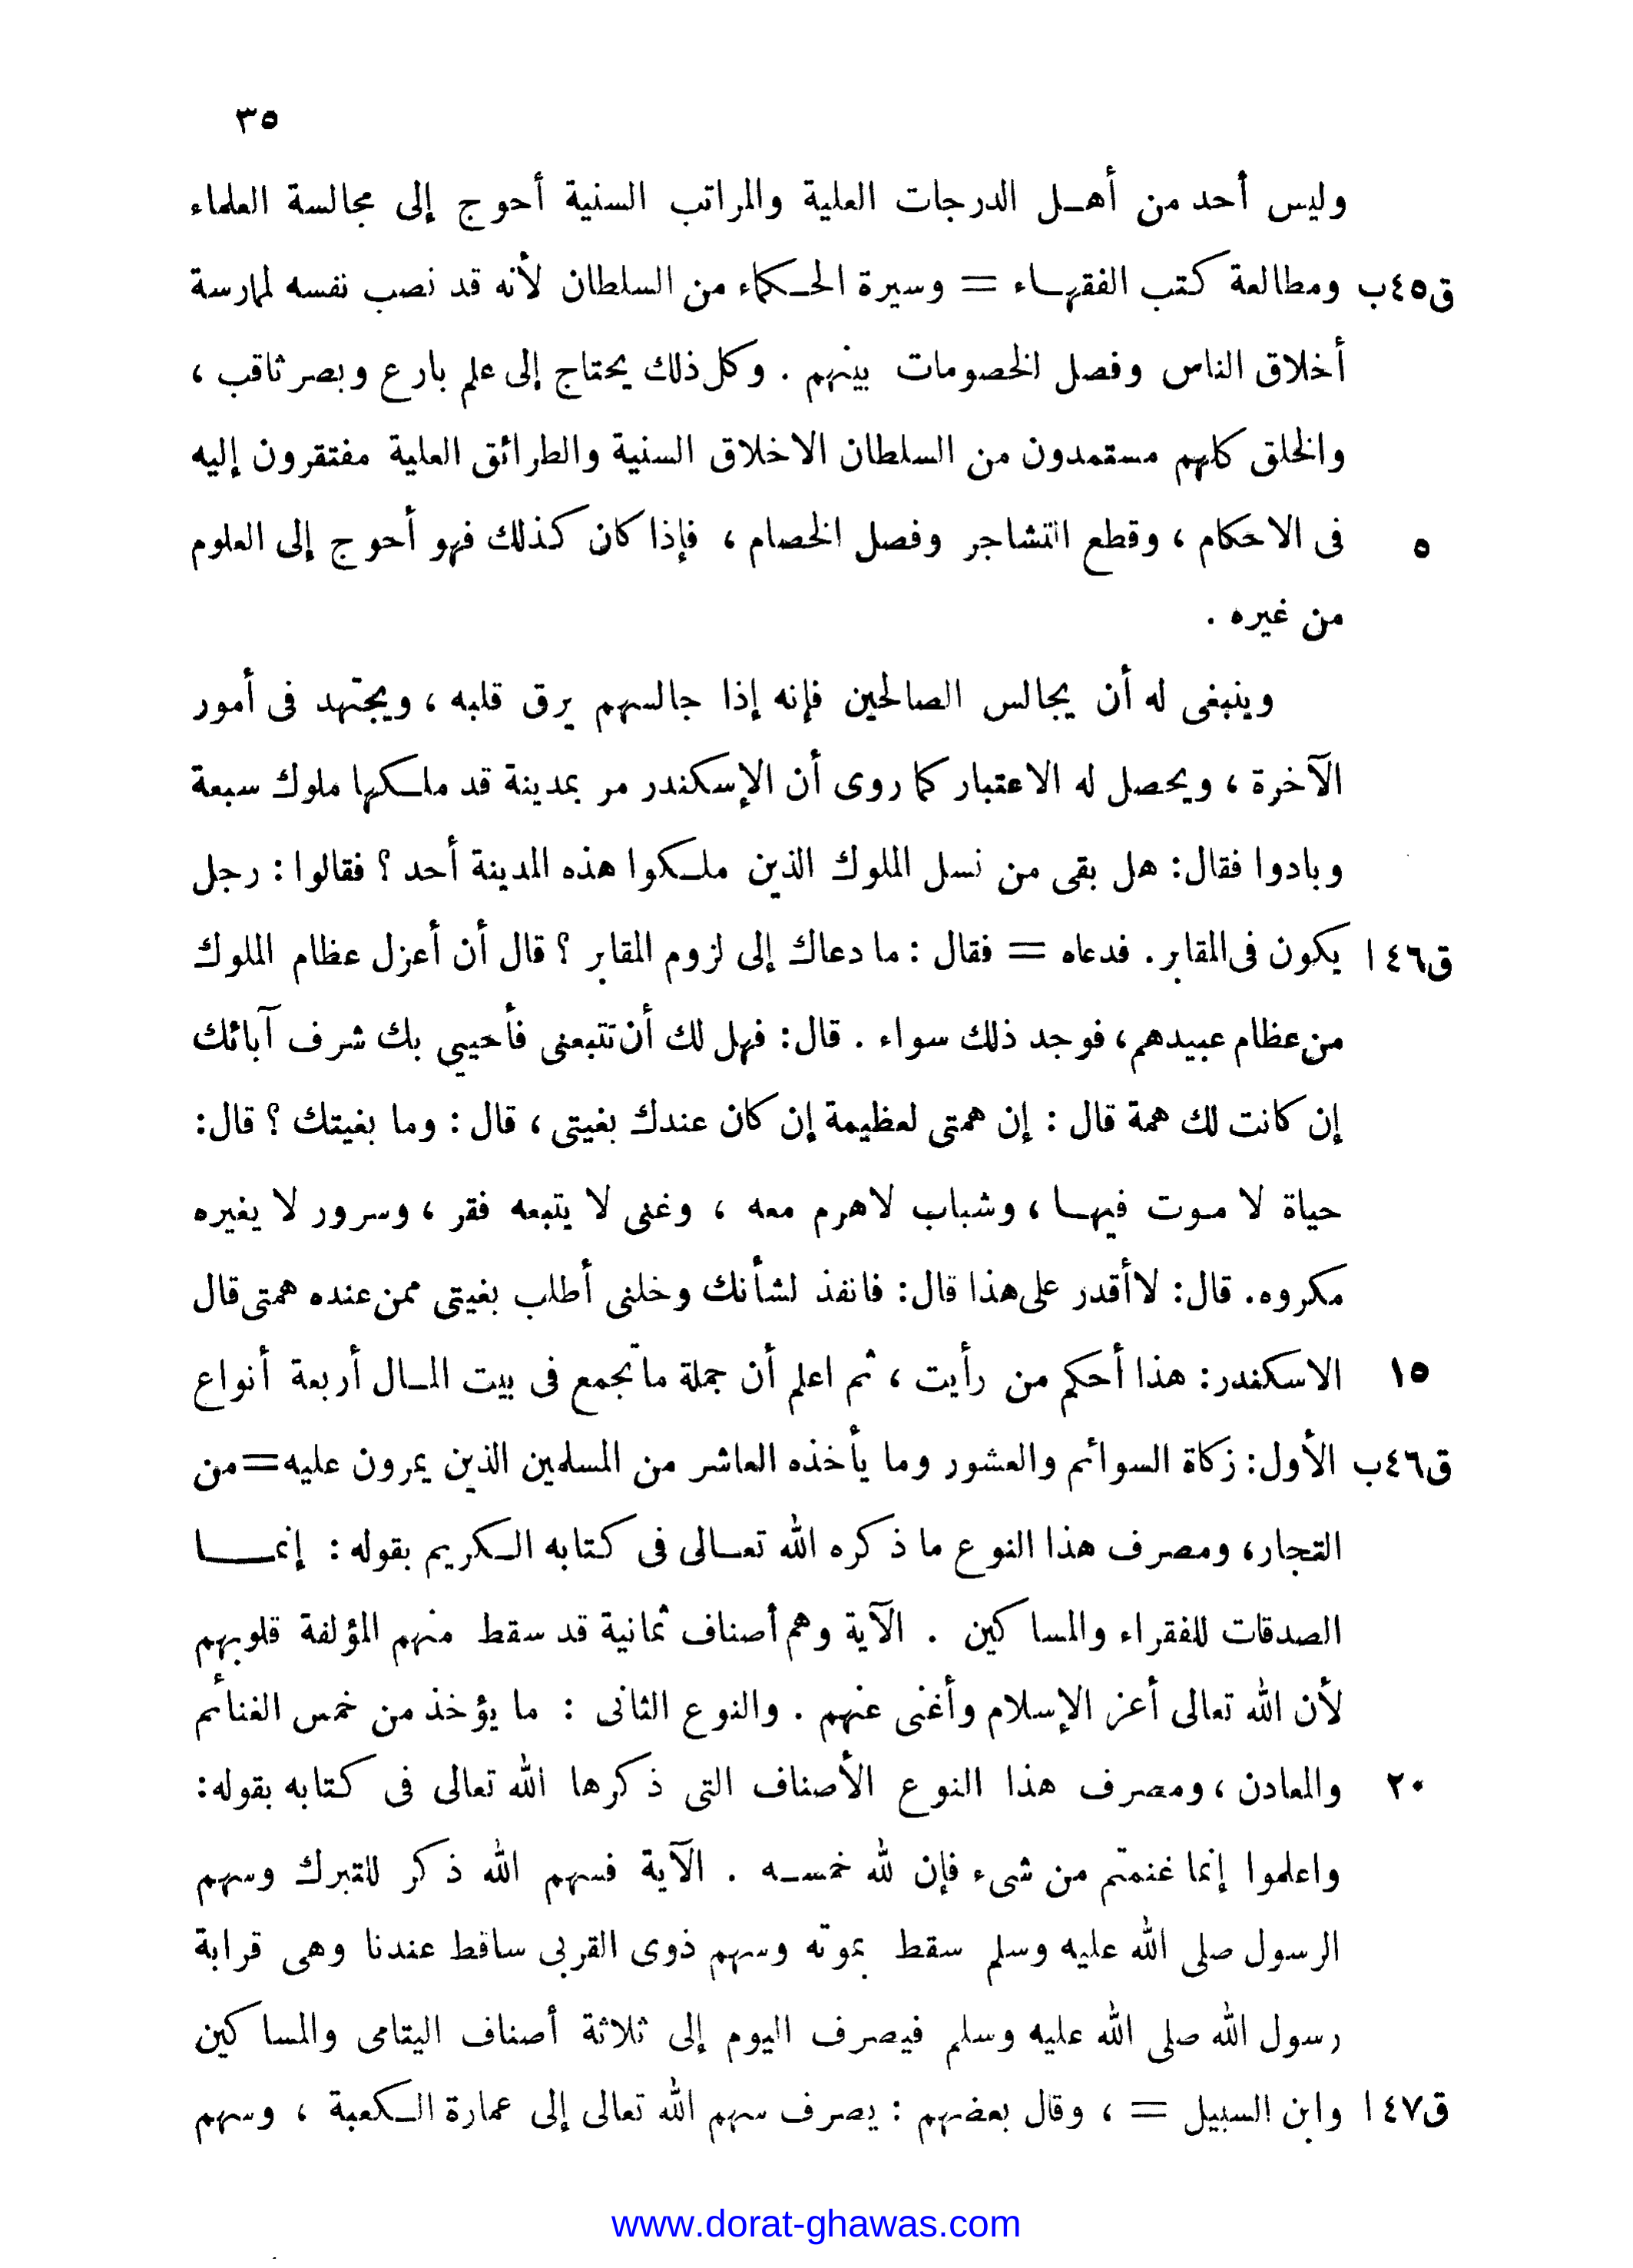 ٣٥
وليس أحد من أهـل الدرجات العلية والمراتب السنية أحوج إلى مجالسة العلماء
ق٤٥ب ومطالعة كتب الفقهـاء = وسيرة الحـكماء من السلطان لأنه قد نصب نفسه لممارسة
أخلاق الناس وفصل الخصومات بينهم . وكل ذلك يحتاج إلى علم بارع وبصر ثاقب ،
والخلق كلهم مستمدون من السلطان الاخلاق السنية والطرائق العلية مفتقرون إليه
٥ فى الاحكام ، وقطع التشاجر وفصل الخصام ، فإذا كان كذلك فهو أحوج إلى العلوم
من غيره .
وينبغى له أن يجالس الصالحين فإنه إذا جالسهم يرق قلبه ، ويجتهد فى أمور
الآخرة ، ويحصل له الاعتبار كما روى أن الإسكندر مر بمدينة قد ملـكها ملوك سبعة
وبادوا فقال: هل بقى من نسل الملوك الذين ملـكوا هذه المدينة أحد ؟ فقالوا : رجل
ق٤٦ا يكون فى المقابر. فدعاه = فقال : ما دعاك إلى لزوم المقابر ؟ قال أن أعزل عظام الملوك
من عظام عبيدهم، فوجد ذلك سواء . قال: فهل لك أن تتبعنى فأحيي بك شرف آبائك
إن كانت لك همة قال : إن همتى لعظيمة إن كان عندك بغيتى ، قال : وما بغيتك ؟ قال:
حياة لا موت فيهـا ، وشباب لاهرم معه ، وغنى لا يتبعه فقر ، وسرور لا يغيره
مكروه. قال: لا أقدر على هذا قال: فانفذ لشأنك وخلنى أطلب بغيتى ممن عنده همتى قال
١٥ الاسكندر: هذا أحكم من رأيت ، ثم اعلم أن جملة ما تجمع فى بيت المـال أربعة أنواع
ق٤٦ب الأول: زكاة السوائم والعشور وما يأخذه العاشر من المسلمين الذين يمرون عليه = من
التجار، ومصرف هذا النوع ما ذكره الله تعـالى فى كتابه الـكريم بقوله : إنمـــا
الصدقات للفقراء والمساكين . الآية وهم أصناف ثمانية قد سقط منهم المؤلفة قلوبهم
لأن الله تعالى أعز الإسلام وأغنى عنهم . والنوع الثانى : ما يؤخذ من خمس الغنائم
٢٠ والمعادن ، ومصرف هذا النوع الأصناف التى ذكرها الله تعالى فى كتابه بقوله:
واعلموا إنما غنمتم من شىء فإن لله خمسـه . الآية فسهم الله ذكر للتبرك وسهم
الرسول صلى الله عليه وسلم سقط بموته وسهم ذوى القربى ساقط عندنا وهى قرابة
رسول الله صلى الله عليه وسلم فيصرف اليوم إلى ثلاثة أصناف اليتامى والمساكين
ق٤٧ا وابن السبيل = ، وقال بعضهم : يصرف سهم الله تعالى إلى عمارة الـكعبة ، وسهم
www.dorat-ghawas.com